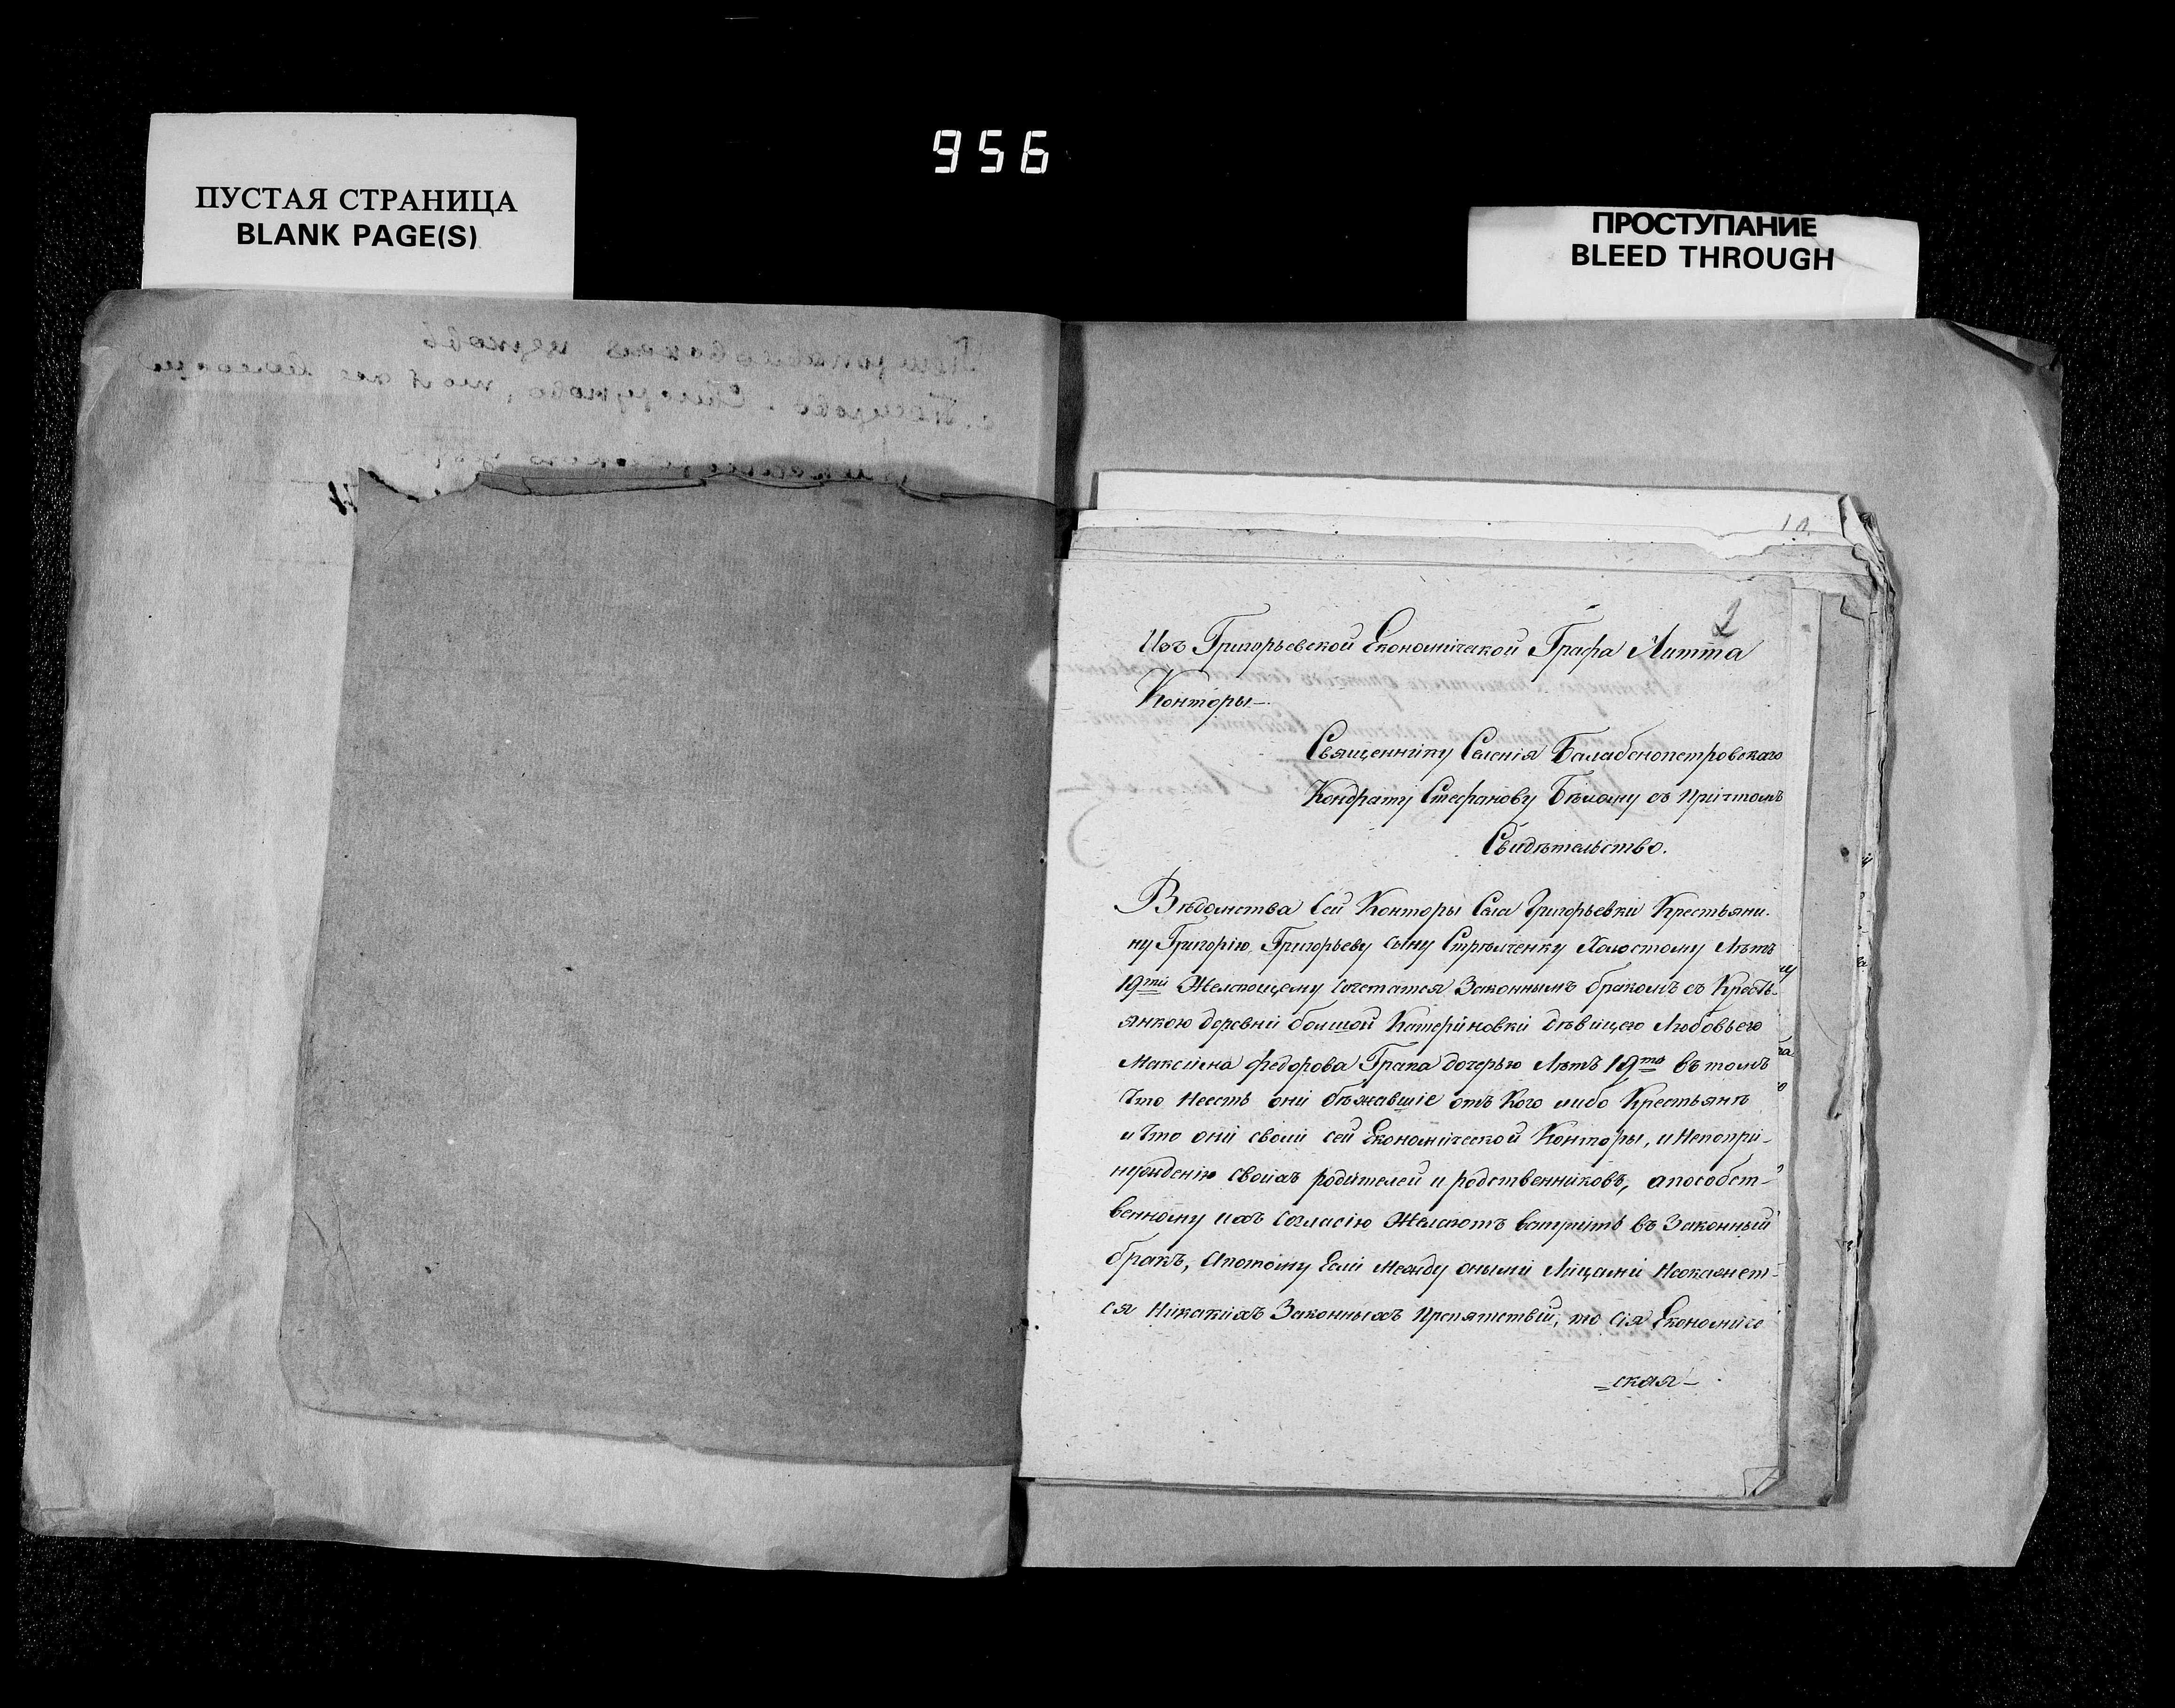 956
ПУСТАЯ СТРАНИЦА
BLANK PAGE(S)
ПРОСТУПАНИЕ
BLEED THROUGH
Изъ Григорьевской Економической Графа Литта
Конторы
Священнику Селенія Балабенопетровскаго
Кондрату Стефанову Бѣлому съ Причтомъ
Свидѣтельство.
Вѣдомства Сей Конторы Села Григорьевки Крестьяни-
ну Григорію Григорьеву сыну Стрѣлченку Холостому Лѣтъ
19ти Желающему Сочетатся Законнымъ бракомъ съ Кресть-
янкою деревни большой Катериновки дѣвицею Любовьего
Максима федорова Грака дочерью Лѣтъ 19ть въ томъ
Что Неесть они бѣжавшіе отъ Кого либо Крестьянъ
и Что они свои сей Економической Конторы, и Непопри-
нужденію своихъ родителей и родственниковъ, апособст-
венному ихъ Согласію Желаютъ вступить въ Законный
бракъ, Апотому Если Между оными Лицами Неокажет-
ся Никакихъ Законныхъ Препятствій, то Сія Економиче
-ская-